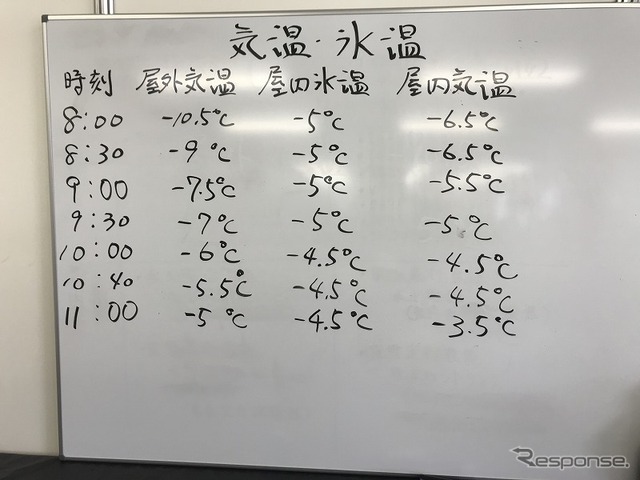 気温・氷温
時刻 屋外気温 屋内氷温 屋内気温
8:00 -10.5℃ -5℃ -6.5℃
8:30 -9℃ -5℃ -6.5℃
9:00 -7.5℃ -5℃ -5.5℃
9:30 -7℃ -5℃ -5℃
10:00 -6℃ -4.5℃ -4.5℃
10:40 -5.5℃ -4.5℃ -4.5℃
11:00 -5℃ -4.5℃ -3.5℃
Response.